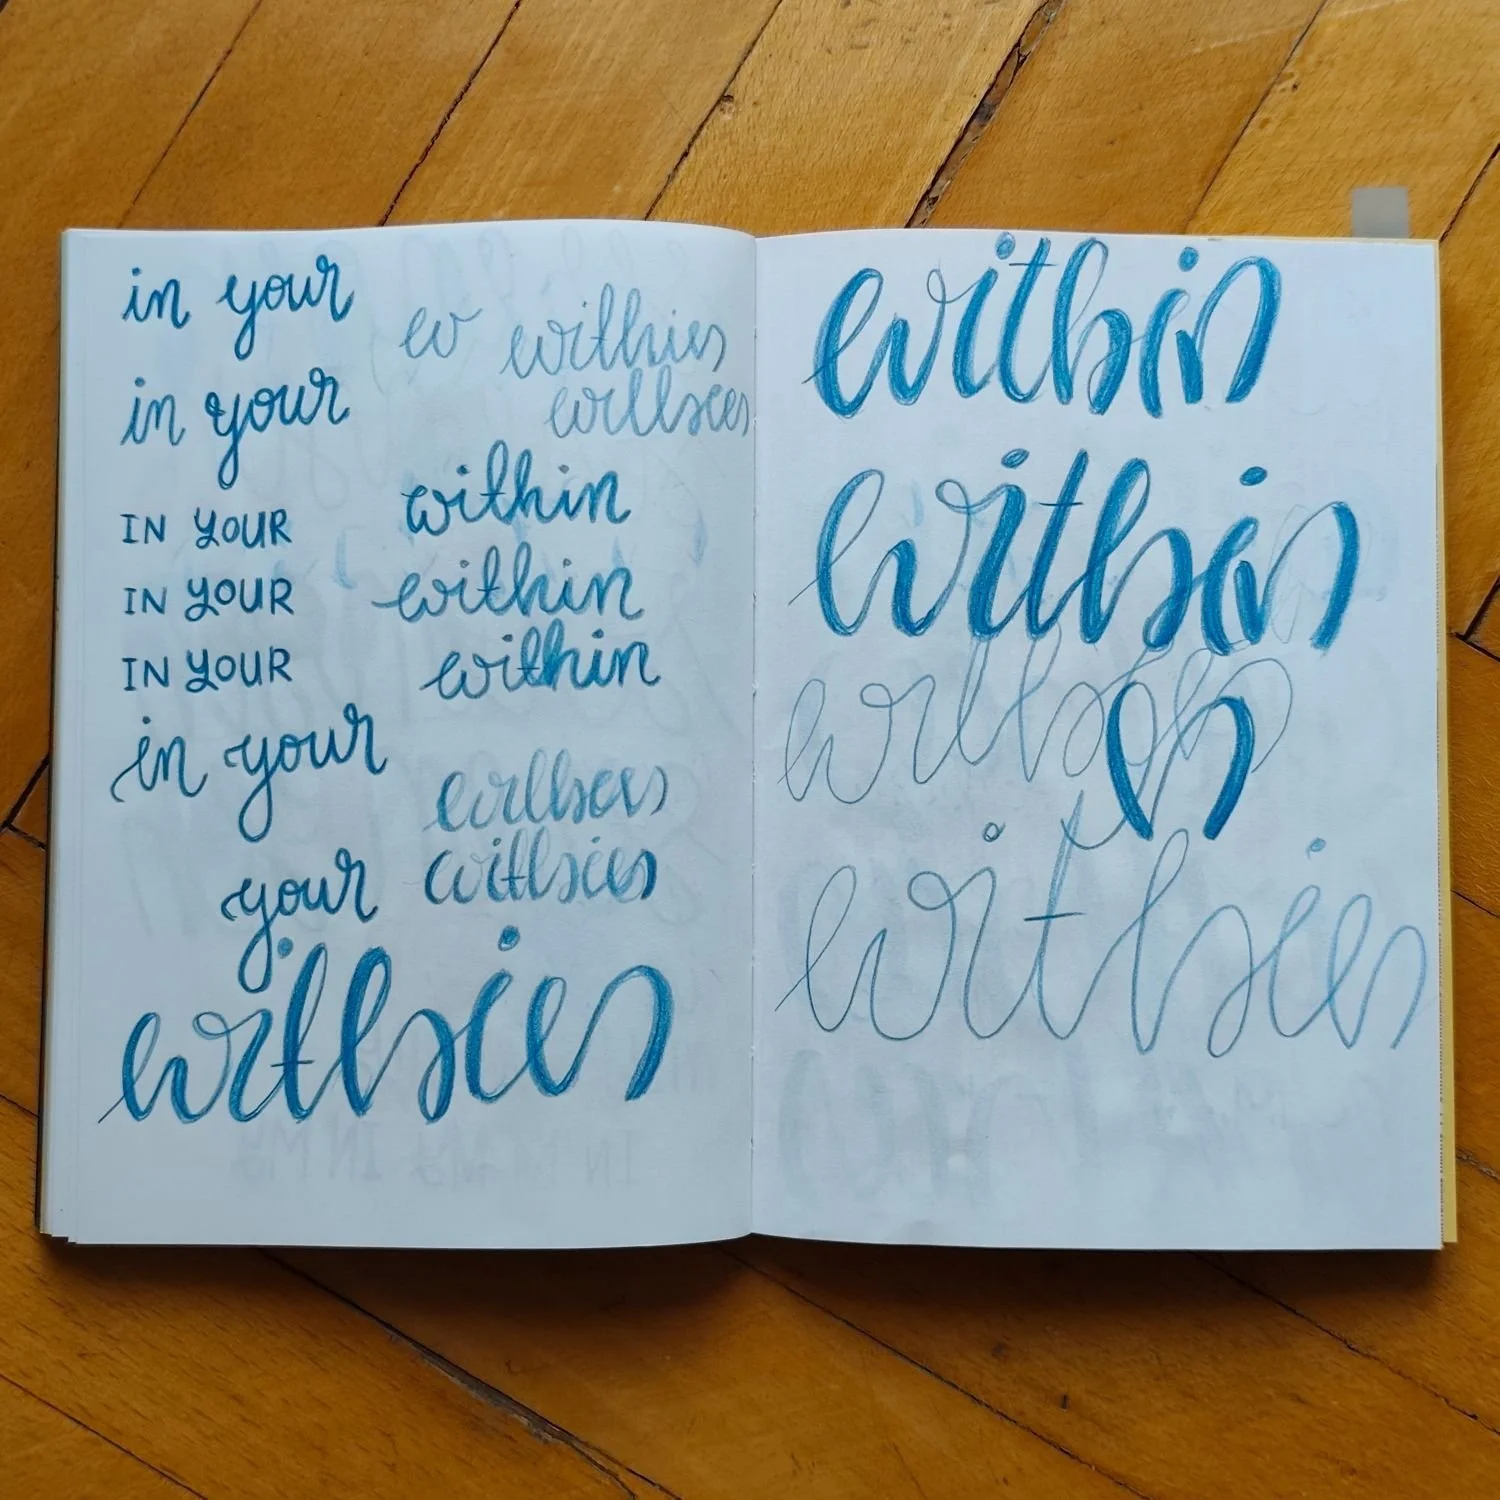 in your
in your
IN YOUR
IN YOUR
IN YOUR
in your
your
within
within
within
within
within
within
within
within
within
within